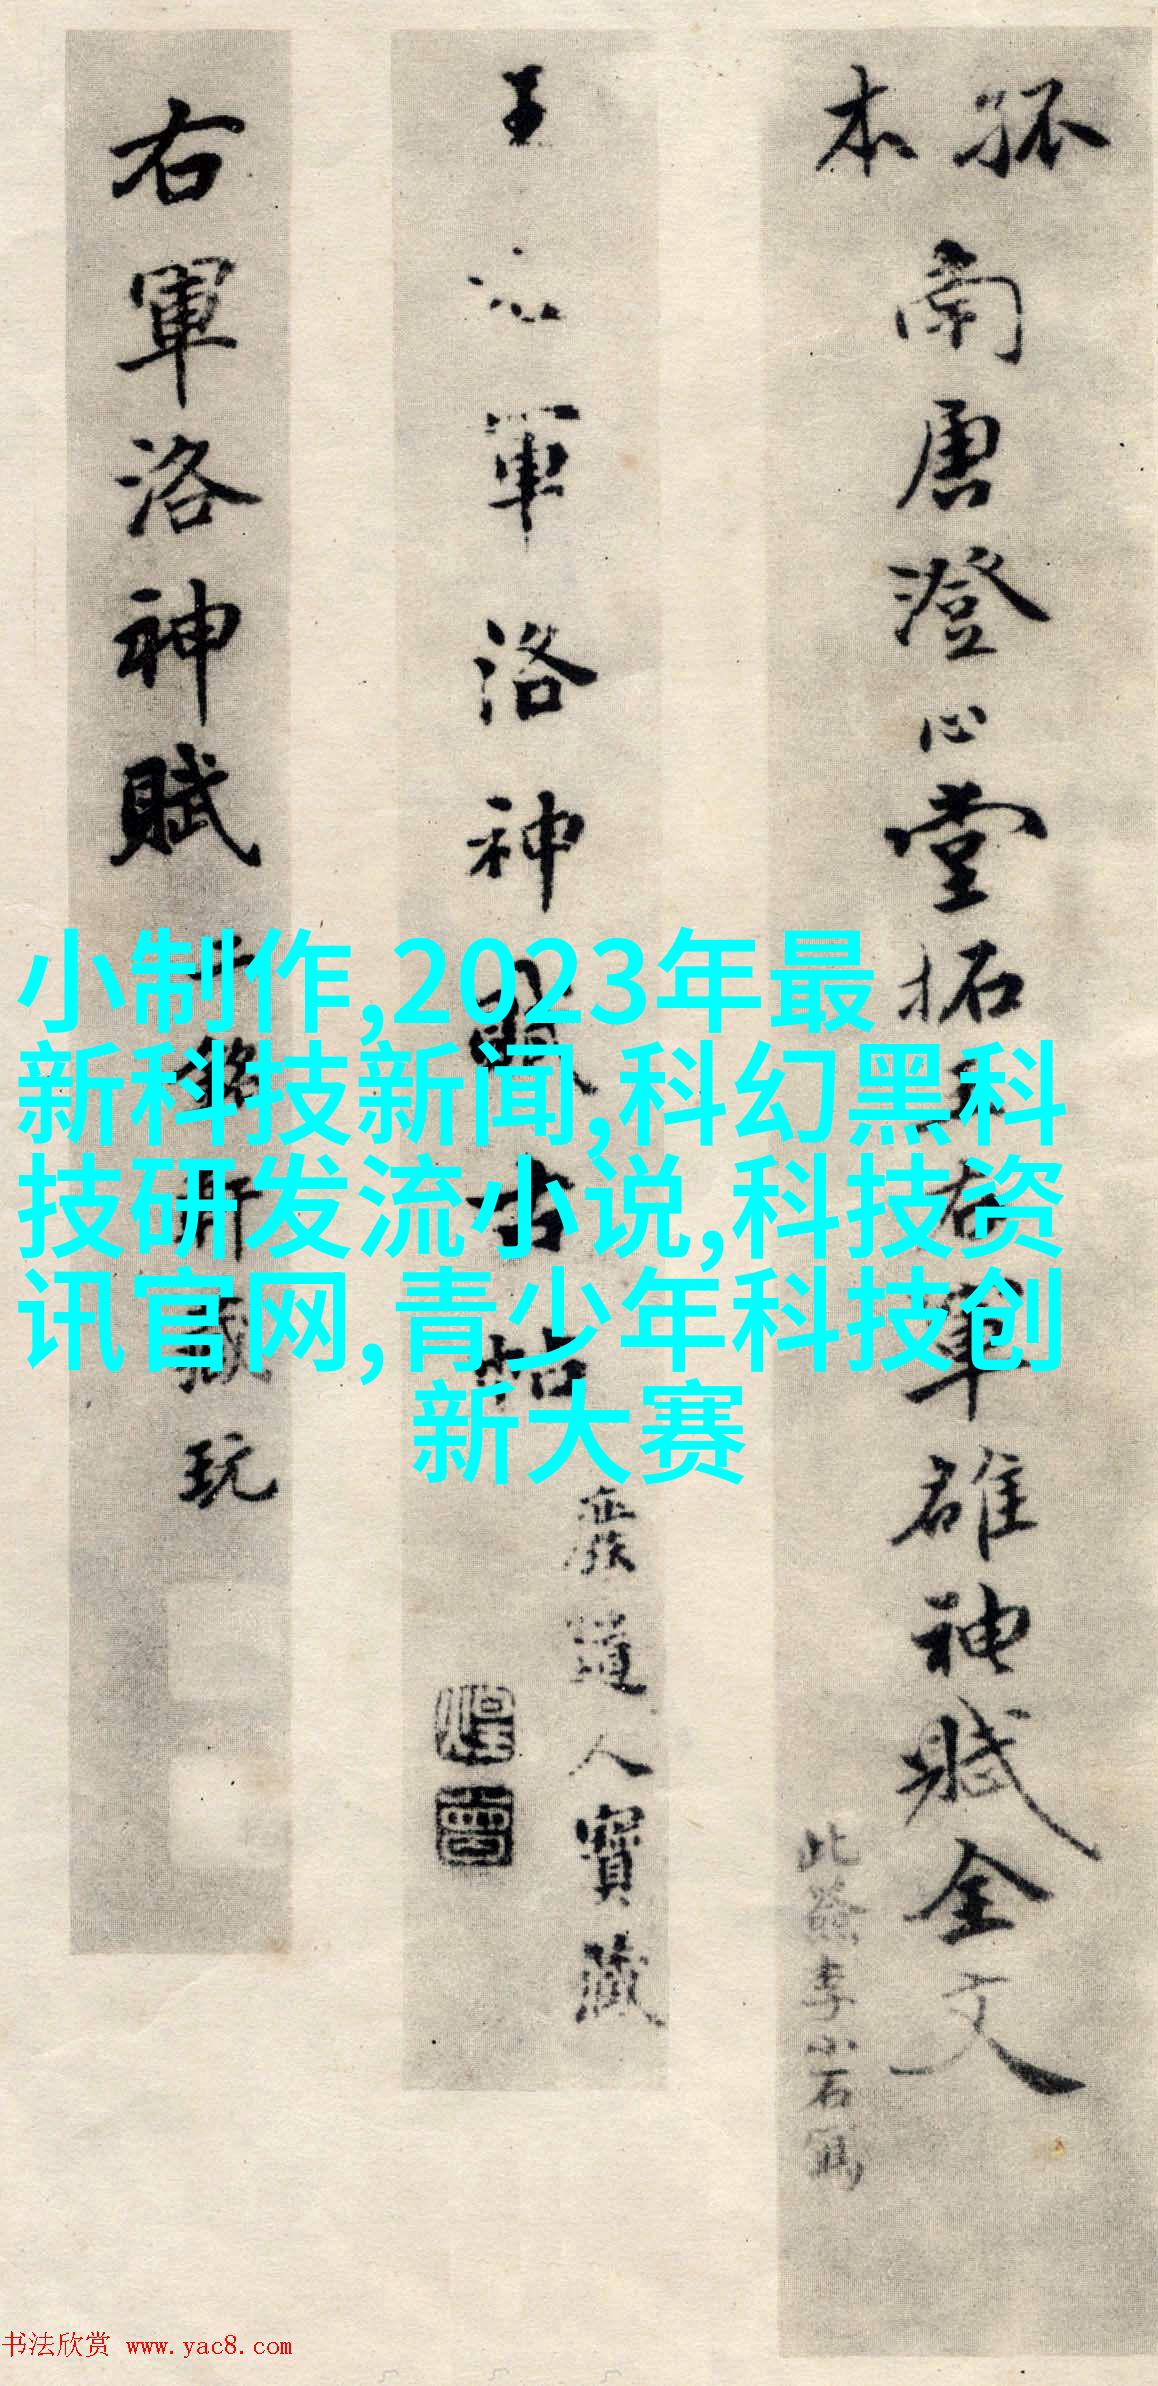 孤本
南唐澄心堂拓王右軍雒神賦全文
此簽李小石寫
王軍洛神賦古帖
道人寶藏
右軍洛神賦
銘軒藏玩
小制作,2023年最
新科技新闻,科幻黑科
技研发流小说,科技资
讯官网,青少年科技创
新大赛
书法欣赏 www.yac8.com